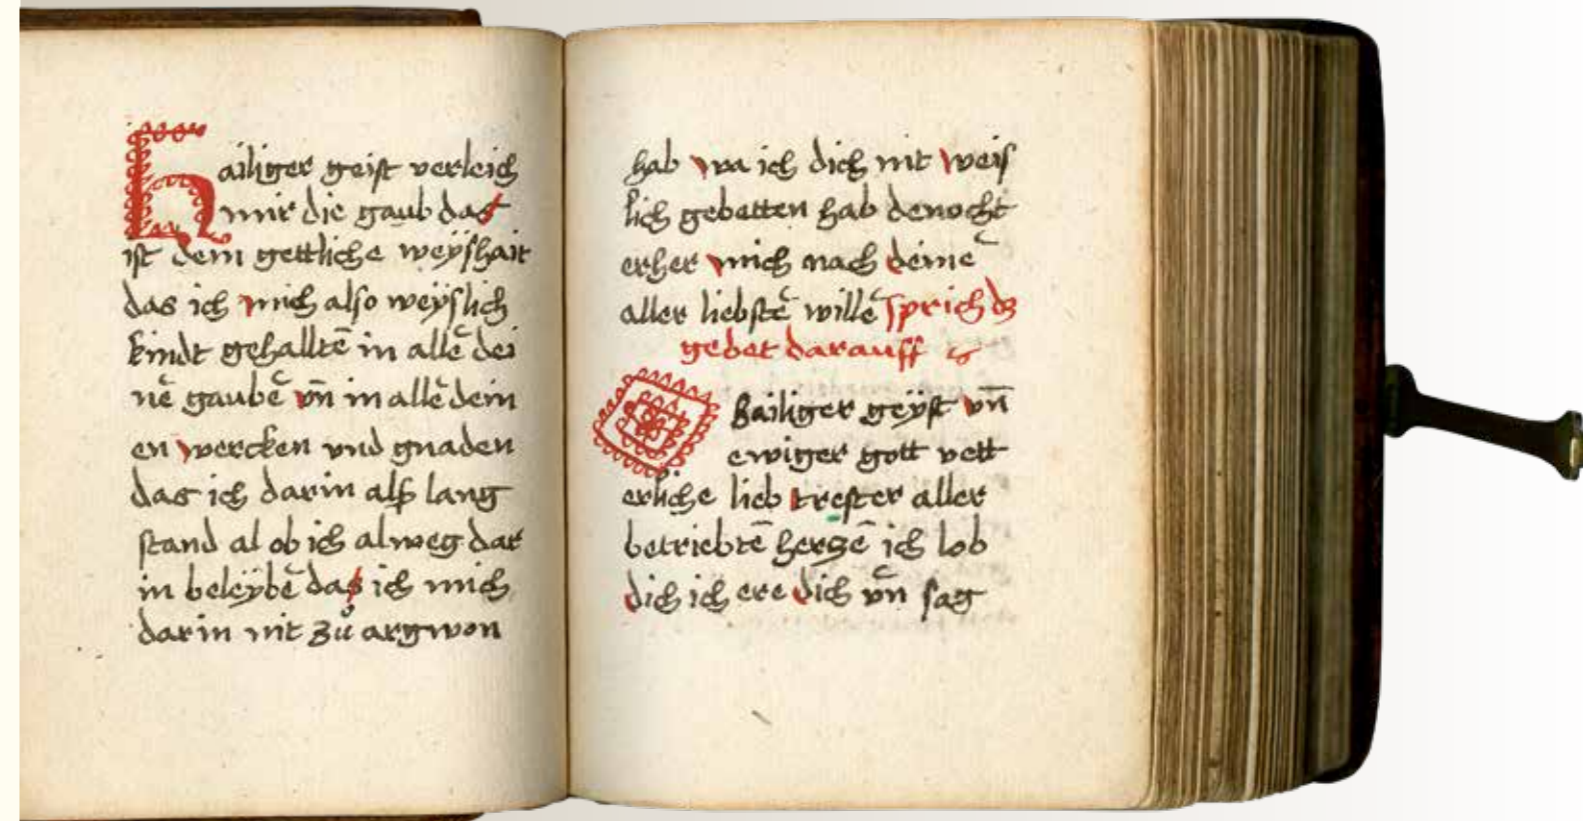 Hailiger geist verleich
mir die gaub das
ist dein gettliche weÿshait
das ich mich also weÿslich
kindt gehalltē in allē dei
nē gaubē vn̄ in allē dein
en wercken vnd gnaden
das ich darin alß lang
stand al ob ich alweg dar
in beleÿbē das ich mich
darin nit zů argwon
hab wa ich dich nit weis
lich gebetten hab denocht
erher mich nach deinē
aller liebstē willē sprich dz
gebet darauff
O hailiger geÿst vn̄
ewiger gott vett
erliche lieb trester aller
betriebtē herzē ich lob
dich ich ere dich vn̄ sag